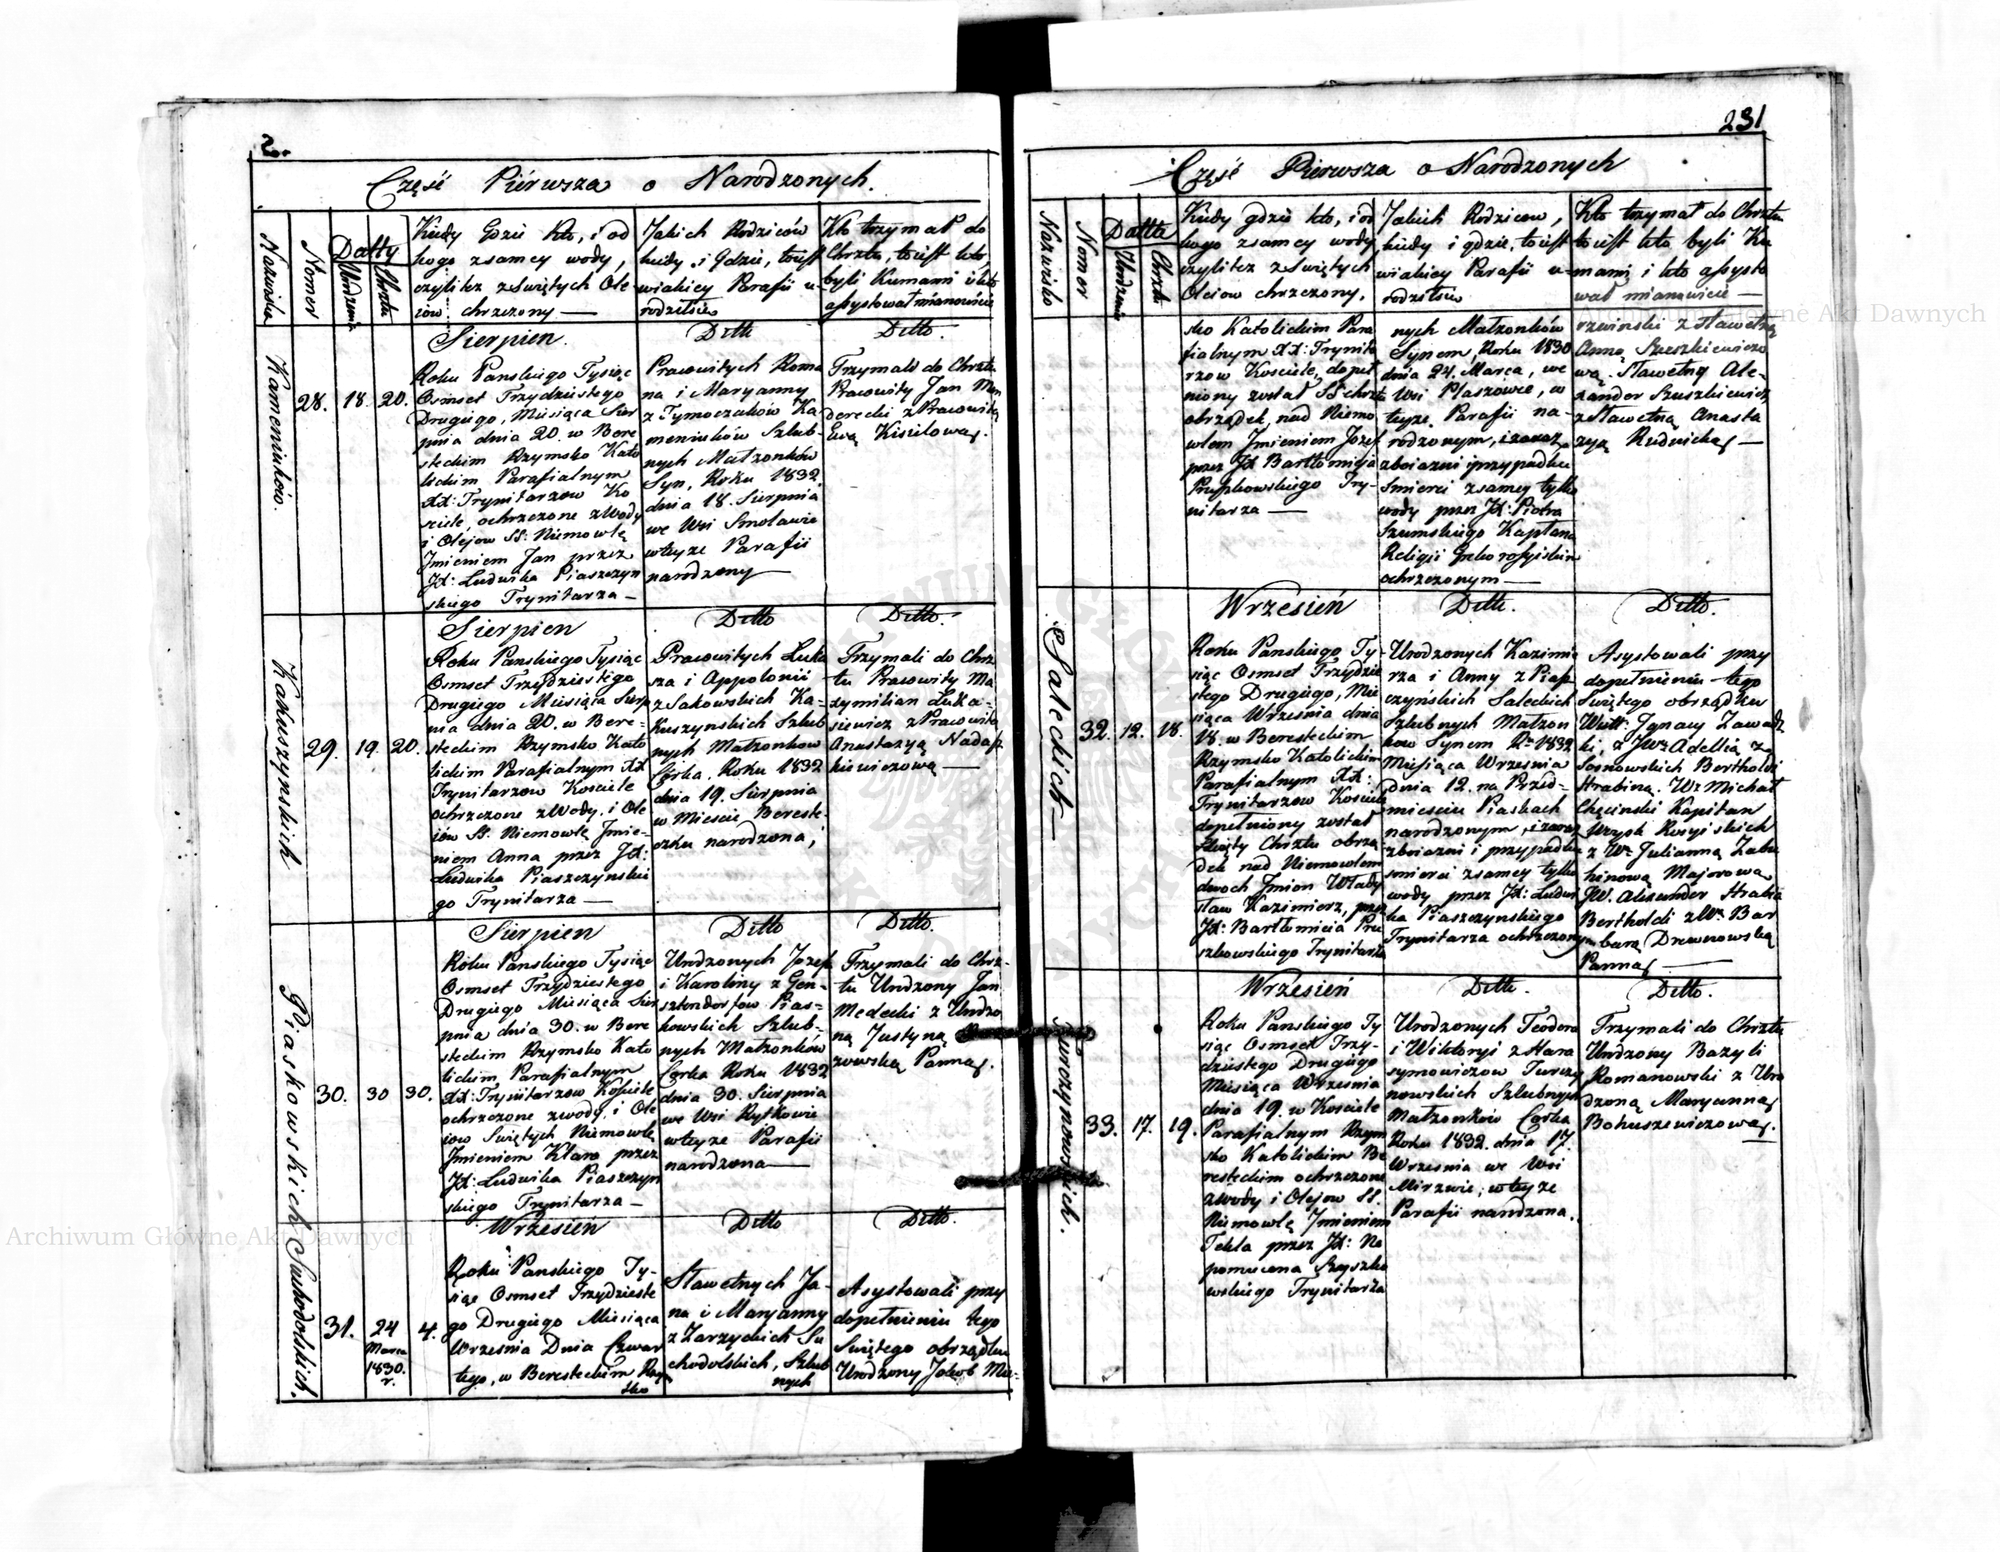 2..
Część Piérwsza o Narodzonych.
Nazwisko
Nomer
Datty
Urodzenia
Chrztu
Kiedy Gdzie kto, i od
kogo zsamey wody,
czylitez z Swiętych Ole-
iów chrzczony —
Jakich Rodziców
kiedy i Gdzie, toiest
wiakiey Parafii u-
rodziłsie
Kto trzymał do
Chrztu, toiest kto
byli Kumami i kto
assystował mianowicie
Kamenniuków.
28.
18.
20.
Sierpien.
Roku Panskiego Tysiąc
Osmset Trzydziestego
Drugiego, Miesiąca Sier
pnia dnia 20. w Bere
steckim Rzymsko Kato
lickim Parafialnym
XX: Trynitarzow Ko
sciele, ochrzczone z Wody
i Olejow SS: Niemowle
Jmieniem Jan przez
JX: Ludwika Piaszczyn
skiego Trynitarza —
Ditto
Pracowitych Roma
na i Maryanny
z Tymoczuków Ka
menniuków Szlub-
nych Małzonków
Syn, Roku 1832
dnia 18. Sierpnia
we Wsi Smolawie
wteyze Parafii
narodzony —
Ditto.
Trzymali do Chrztu
Pracowity Jan Men
derecki z Pracowitą
Ewą Kisielową.
Kakuszynskich
29.
19.
20.
Sierpien
Roku Panskiego Tysiąc
Osmset Trzydziestego
Drugiego Miesiąca Sierp
nia dnia 20. w Bere-
steckim Rzymsko Kato
lickim Parafialnym XX
Trynitarzow Kosciele
ochrzczone z Wody, i Ole
iów SS. Niemowle Jmie-
niem Anna przez JX:
Ludwika Piaszczynskie
go Trynitarza —
Ditto
Pracowitych Łuka
sza i Appolonii
z Sakowskich Ka-
kuszynskich Szlub
nych Małzonkow
Córka. Roku 1832
dnia 19. Sierpnia
w Miescie Bereste-
czku narodzona,
Ditto.
Trzymali do Chrz
tu Pracowity Ma
xymilian Łuka-
siewicz z Pracowitą
Anastazyą Nadasz
kiewiczową —
Piaskowskich
30.
30
30.
Sierpien
Roku Panskiego Tysiąc
Osmset Trzydziestego
Drugiego Miesiąca Sier
pnia dnia 30. w Bere
steckim Rzymsko Kato
lickim Parafialnym
XX: Trynitarzow Kosciele
ochrzczone zwody, i Ole
iow Swiętych Niemowle
Jmieniem Klara przez
JX: Ludwika Piaszczyn
skiego Trynitarza —
Ditto
Urodzonych Jozefa
i Karoliny z Gon-
sztendorfow Pias-
kowskich Szlub-
nych Małzonków
Corka Roku 1832
dnia 30. Sierpnia
we Wsi Rytkowie
wteyze Parafii
narodzona —
Ditto.
Trzymali do Chrz-
tu Urodzony Jan
Medecki z Urodzo
ną Justyną
zowską Panną.
Suchodolskich.
31.
24
Marca
1830.
r.
4.
Wrzesien
Roku Panskiego Ty-
siąc Osmset Trzydzieste
go Drugiego Miesiąca
Wrzesnia Dnia Czwar
tego, w Beresteckim Rzym
sko
Ditto
Sławetnych Ja-
na i Maryanny
z Zarzyckich Su
chodolskich, Szlub
nych
Ditto.
Asystowali przy
dopełnieniu tego
Swiętego obrządku
Urodzony Jakob Mu-
231
Część Pierwsza o Narodzonych
Nazwisko
Nomer
Datta
Urodzenia
Chrztu
Kiedy gdzie kto, i od
kogo zsamey wody
czylitez z Swiętych
Oleiow chrzczony,
Jakich Rodzicow,
kiedy i gdzie, toiest
wiakiey Parafii u-
rodziłsie
Kto trzymał do Chrztu
toiest kto byli Ku
mami i kto assysto
wał mianowicie —
sko Katolickim Para
fialnym XX: Trynita
rzow Kosciele, dopeł
niony został S: Chrztu
obrządek, nad Niemo
wlem Jmieniem Jozef
przez JX Bartłomieja
Pruszkowskiego Try-
nitarza —
nych Małzonków
Synem, Roku 1830
dnia 24. Marca, we
Wsi Płaszowie, w
teyze Parafii na-
rodzonym, i zaraz
zboiazni i przypadku
Smierci zsamey tylko
wody przez JX: Piotra
Szumskiego Kapłana
Religii Greko rossyiskiey
ochrzczonym —
rzwinski z Sławetną
Anną Szeszkiewiczo
wą. Sławetny Ale-
xander Szuszkiewicz
z Sławetną Anasta
zyą Rudnicką —
Saleckich
32.
12.
18.
Wrzesień
Roku Panskiego Ty-
siąc Osmset Trzydzie
stego Drugiego, Mie
siąca Wrzesnia dnia
18. w Beresteckim
Rzymsko Katolickim
Parafialnym XX:
Trynitarzow Kosciele
dopełniony został
Swięty Chrztu obrzą
dek nad Niemowlem
dwoch Jmion Włady
sław Kazimierz, przez
JX: Bartłomieia Pru
szkowskiego Trynitarza
Ditto.
Urodzonych Kazimie
rza i Anny z Piasz
czyńskich Saleckich
Szlubnych Małzon
kow Synem Rº 1832
Miesiąca Wrzesnia
Dnia 12. na Przed-
miesciu Piaskach
narodzonym, i zaraz
zboiazni i przypadku
smierci zsamey tylko
wody przez JX: Ludwi
ka Piaszczynskiego
Trynitarza ochrzczonym
Ditto.
Asystowali przy
dopełnieniu tego
Swiętego obrządku
Wielł: Jgnacy Zawadz
ki, z JWą Adellią z
Sosnowskich Bertholdi
Hrabiną. Wº Michał
Chęcinski Kapitan
Woysk Rosyiskich
z Wą Julianną Zabu
kinową Majorową
JW. Alexander Hrabia
Bertholdi z Wą Bar
barą Drewnowską
Panną —
Turczynowskich.
33.
17.
19.
Wrzesień
Roku Panskiego Ty-
siąc Osmset Trzy-
dziestego Drugiego
Miesiąca Wrzesnia
dnia 19. w Kosciele
Parafialnym Rzym
sko Katolickim Be
resteckim ochrzczone
zwody i Olejow SS.
Niemowle Jmieniem
Tekla przez JX: Ne
pomucena Szyszko
wskiego Trynitarza
Ditto.
Urodzonych Teodora
i Wiktoryi z Hara
symowiczow Turczy
nowskich Szlubnych
Małzonków Corka
Roku 1832. dnia 17.
Wrzesnia we Wsi
Mirzwie, wteyze
Parafii narodzona.
Ditto.
Trzymali do Chrztu
Urodzony Bazyli
Romanowski z Uro
dzoną Maryanną
Bohuszewiczową.
Archiwum Główne Akt Dawnych
Archiwum Główne Akt Dawnych